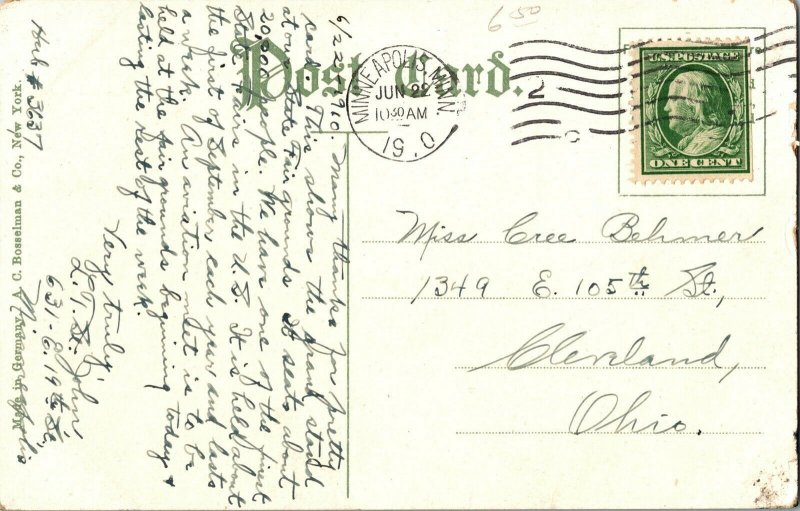 6 50
Post Card.
MINNEAPOLIS, MINN.
JUN 22
10 30 AM
1910
2
U.S. POSTAGE
ONE CENT
Miss Cree Behmer
1349 E. 105th St,
Cleveland,
Ohio.
6/22/1910. Many thanks for pretty
card. This shows the grand stand
at our State Fair grounds. It seats about
20,000 people. We have one of the finest
State Fairs in the U.S. It is held about
the first of September, each year and lasts
a week. An aviation meet is to be
held at the fair grounds beginning today &
lasting the rest of the week.
Very truly,
L. T. St. John
631-6. 19th St,
Minneapolis
Hub # 3637
Made in Germany A. C. Bosselman & Co., New York.